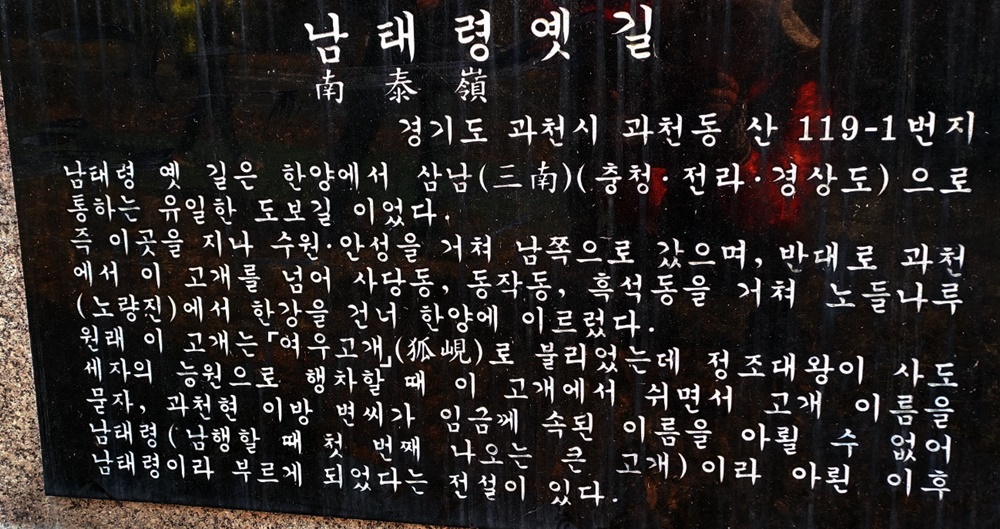 남태령옛길
南泰嶺
경기도 과천시 과천동 산 119-1번지
남태령 옛 길은 한양에서 삼남(三南)(충청·전라·경상도)으로
통하는 유일한 도보길 이었다.
즉 이곳을 지나 수원·안성을 거쳐 남쪽으로 갔으며, 반대로 과천
에서 이 고개를 넘어 사당동, 동작동, 흑석동을 거쳐 노들나루
(노량진)에서 한강을 건너 한양에 이르렀다.
원래 이 고개는「여우고개」(狐峴)로 불리었는데 정조대왕이 사도
세자의 능원으로 행차할 때 이 고개에서 쉬면서 고개 이름을
묻자, 과천현 이방 변씨가 임금께 속된 이름을 아뢸 수 없어
남태령(남행할 때 첫 번째 나오는 큰 고개)이라 아뢴 이후
남태령이라 부르게 되었다는 전설이 있다.